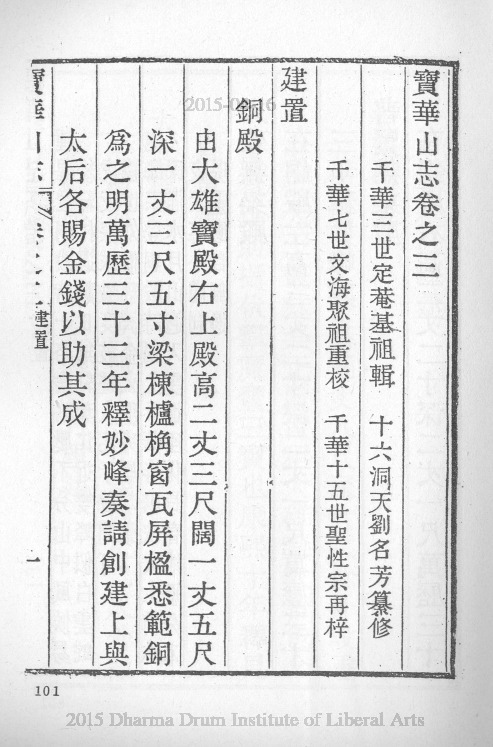 寶華山志卷之三
千華三世定菴基祖輯　十六洞天劉名芳纂修
千華七世文海聚祖重校　千華十五世聖性宗再梓
建置
銅殿
由大雄寶殿右上殿高二丈三尺闊一丈五尺
深一丈三尺五寸梁棟櫨桷窗瓦屏楹悉範銅
爲之明萬歷三十三年釋妙峰奏請創建上與
太后各賜金錢以助其成
寶華山志 卷之三 建置 一
101
2015 Dharma Drum Institute of Liberal Arts